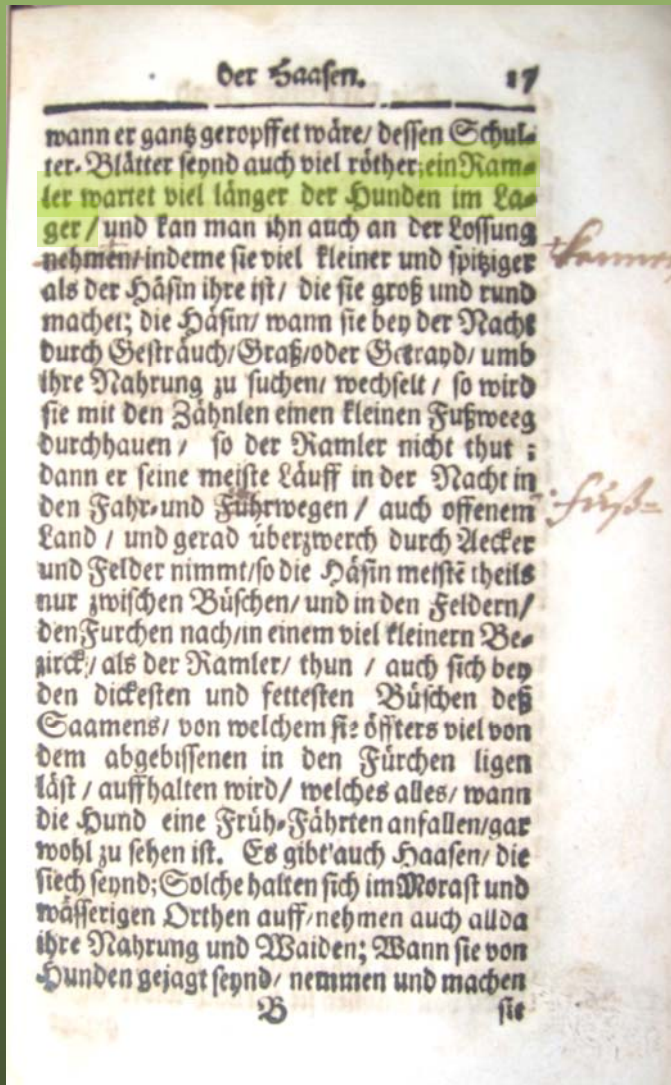 der Haasen. 17
wann er gantz geropffet wäre/ dessen Schul-
ter-Blätter seynd auch viel röther; ein Ram-
ler wartet viel länger der Hunden im La-
ger / und kan man ihn auch an der Lossung
nehmen/ indeme sie viel kleiner und spitziger
als der Häsin ihre ist / die sie groß und rund
machet; die Häsin/ wann sie bey der Nacht
durch Gesträuch/Graß/oder Getrayd/ umb
ihre Nahrung zu suchen/ wechselt / so wird
sie mit den Zähnlen einen kleinen Fußweeg
durchhauen / so der Ramler nicht thut ;
dann er seine meiste Läuff in der Nacht in
den Fahr-und Führwegen / auch offenem
Land / und gerad überzwerch durch Aecker
und Felder nimmt/so die Häsin meistē theils
nur zwischen Büschen/ und in den Feldern/
den Furchen nach/in einem viel kleinern Be-
zirck/ als der Ramler/ thun / auch sich bey
den dickesten und fettesten Büschen deß
Saamens/ von welchem sie öffters viel von
dem abgebissenen in den Fürchen ligen
läst / auffhalten wird/ welches alles/ wann
die Hund eine Früh-Fährten anfallen/gar
wohl zu sehen ist. Es gibt auch Haasen/ die
siech seynd; Solche halten sich im Morast und
wässerigen Orthen auff/nehmen auch allda
ihre Nahrung und Waiden; Wann sie von
Hunden gejagt seynd/ nemmen und machen
B sie
fuß=